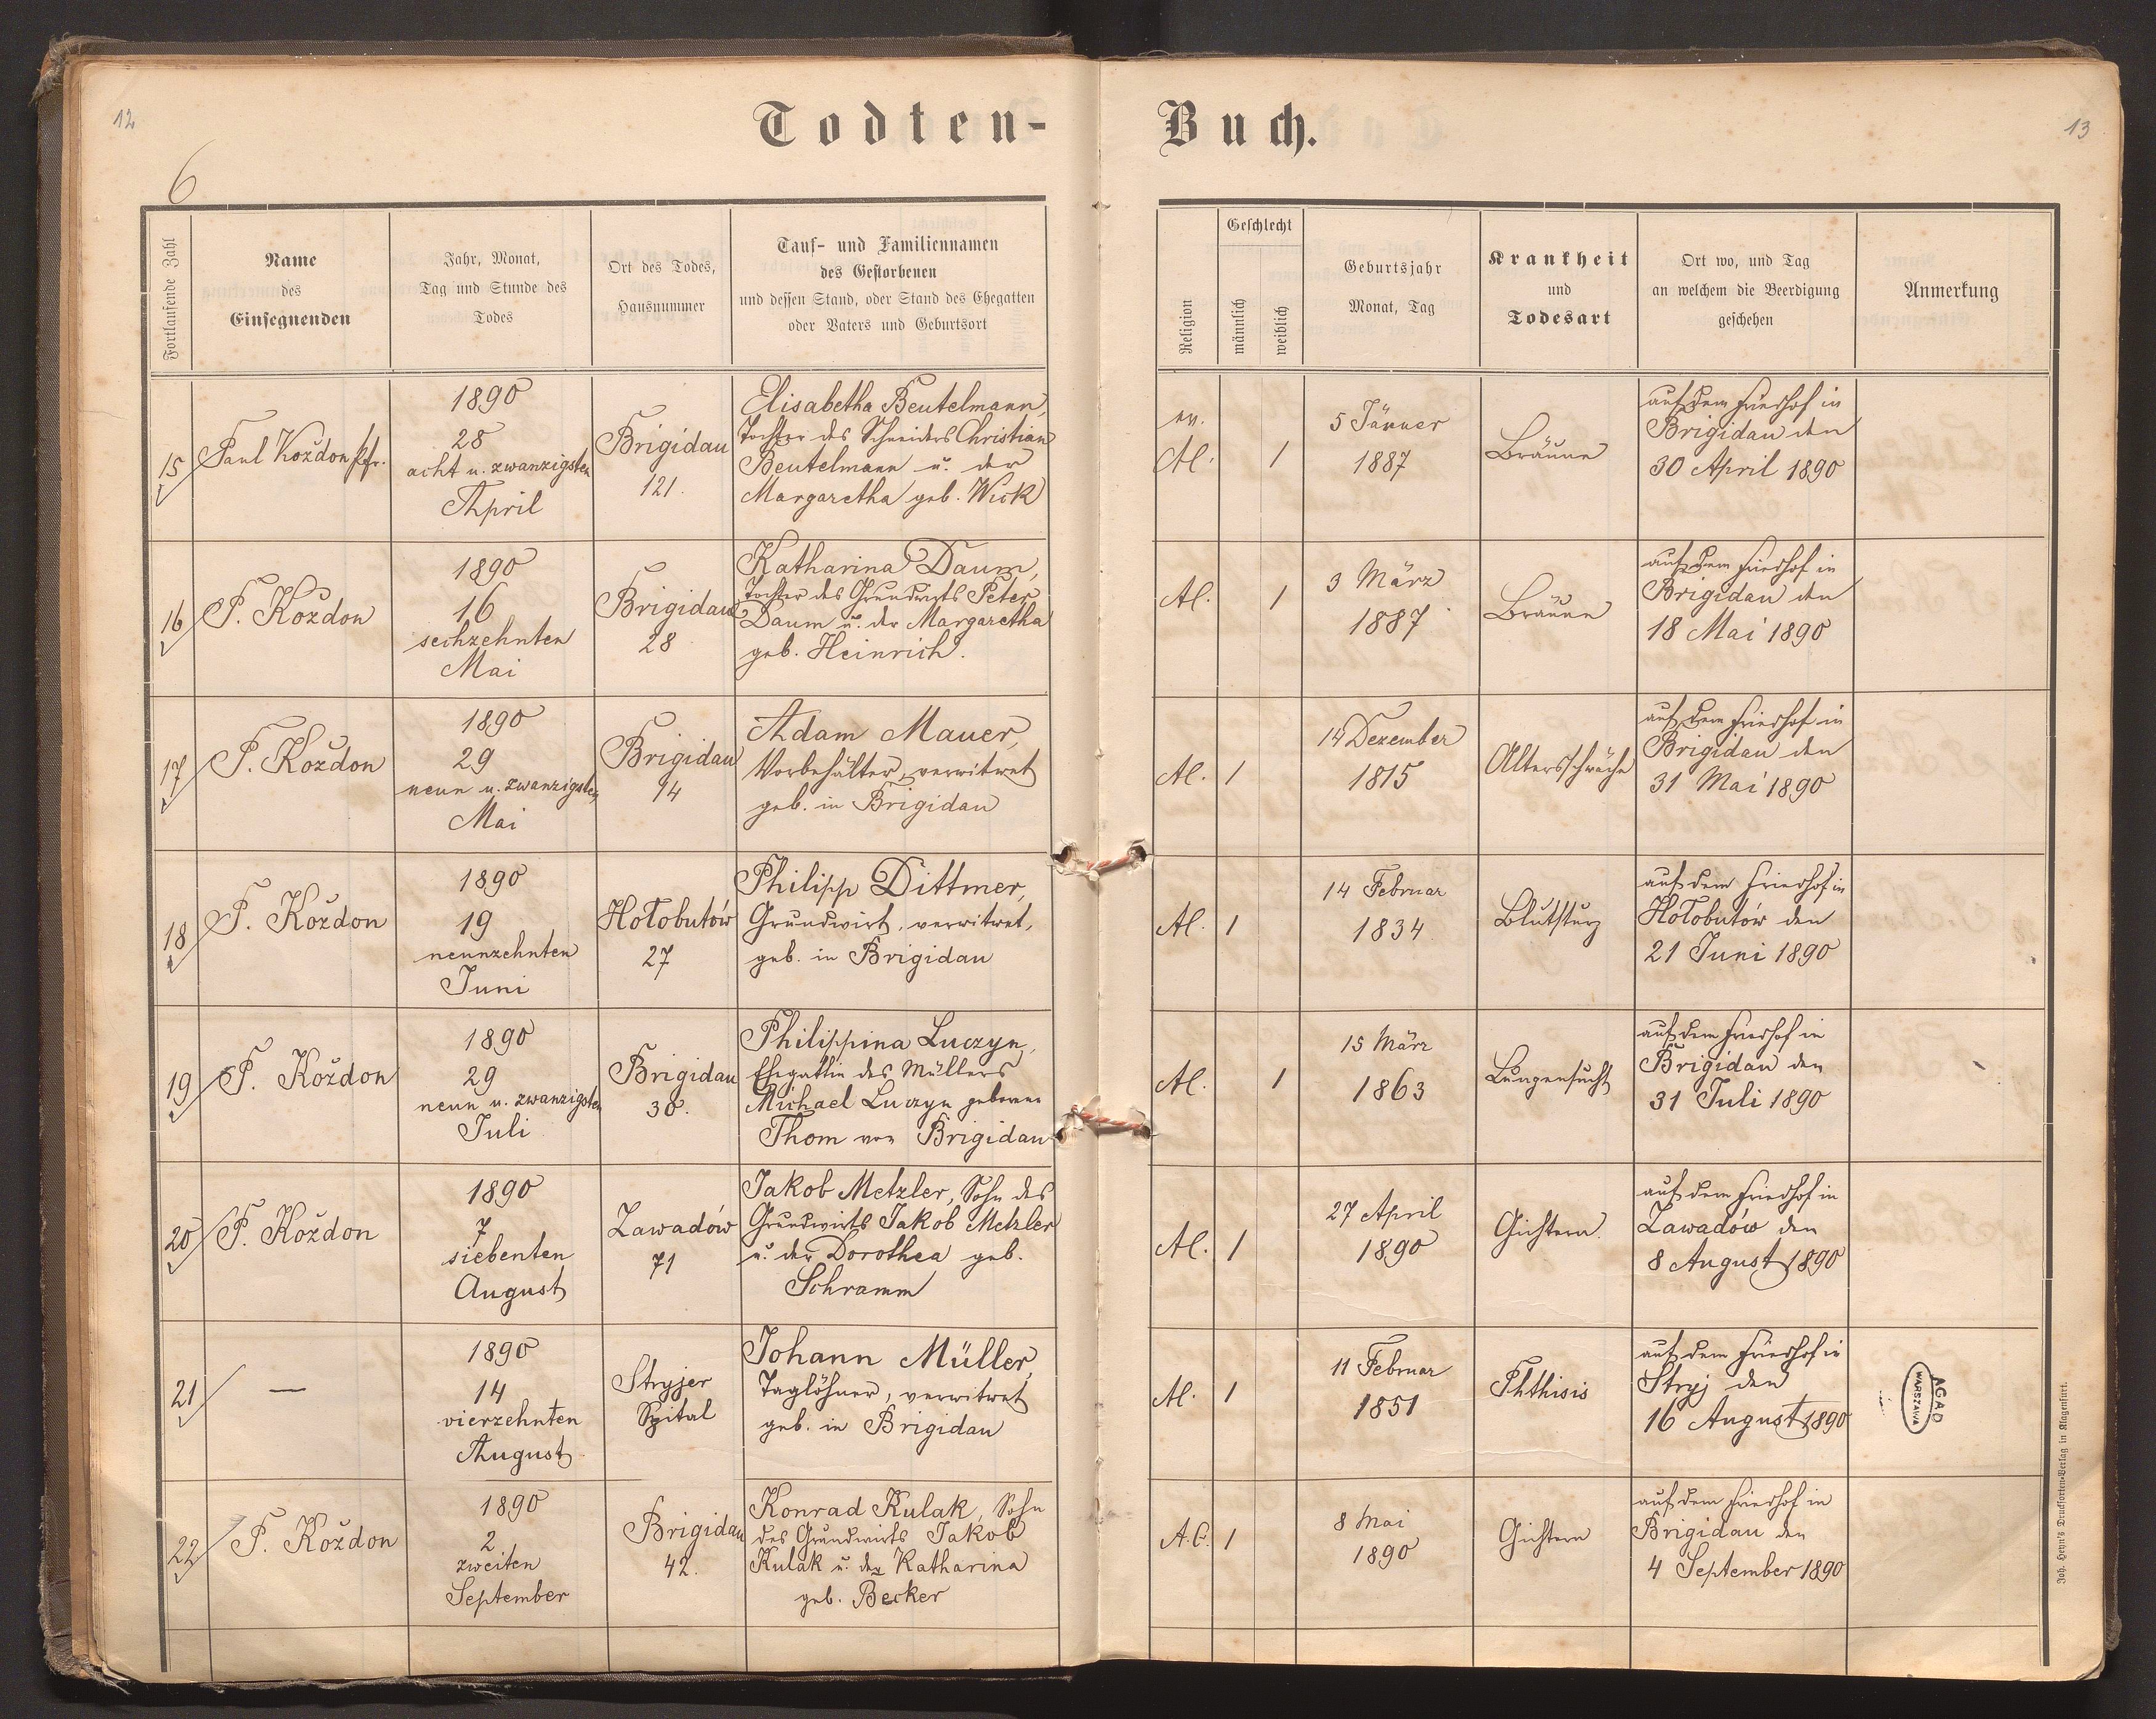 12
13
6
Todten-
Buch.
Fortlaufende Zahl
Name
des
Einsegnenden
Jahr, Monat,
Tag und Stunde des
Todes
Ort des Todes,
Hausnummer
Tauf- und Familiennamen
des Gestorbenen
und dessen Stand, oder Stand des Ehegatten
oder Vaters und Geburtsort
Religion
Geschlecht
männlich
weiblich
Geburtsjahr
Monat, Tag
Krankheit
und
Todesart
Ort wo, und Tag
an welchem die Beerdigung
geschehen
Anmerkung
15
Paul Koždon Pfr.
1890
28
acht u. zwanzigsten
April
Brigidau
121.
Elisabetha Beutelmann,
Tochter des Schneiders Christian
Beutelmann u. der
Margaretha geb. Wick
ev.
Al.
1
5 Jänner
1887
Bräune
auf dem Friedhof in
Brigidau den
30 April 1890
16
P. Koždon
1890
16
sechzehnten
Mai
Brigidau
28
Katharina Daum,
Tochter des Grundwirts Peter
Daum u. der Margaretha
geb. Heinrich.
Al.
1
3 März
1887
Bräune
auf dem Friedhof in
Brigidau den
18 Mai 1890
17
P. Koždon
1890
29
neun u. zwanzigsten
Mai
Brigidau
14
Adam Mauer,
Vorbehälter, verwitwet
geb. in Brigidau
Al.
1
14 Dezember
1815
Altersschwäche
auf dem Friedhof in
Brigidau den
31 Mai 1890
18
P. Koždon
1890
19
neunzehnten
Juni
Hołobutów
27
Philipp Dittmer,
Grundwirt, verwitwet,
geb. in Brigidau
Al.
1
14 Februar
1834
Blutsturz
auf dem Friedhof in
Hołobutów den
21 Juni 1890
19
P. Koždon
1890
29
neun u. zwanzigsten
Juli
Brigidau
30.
Philippina Luczyn,
Ehegattin des Müllers
Michael Luczyn geborene
Thom von Brigidau
Al.
1
15 März
1863
Lungensucht
auf dem Friedhof in
Brigidau den
31 Juli 1890
20
P. Koždon
1890
7
siebenten
August
Zawadów
71
Jakob Metzler, Sohn des
Grundwirts Jakob Metzler
u. der Dorothea geb.
Schramm
Al.
1
27 April
1890
Gichtern.
auf dem Friedhof in
Zawadów den
8 August 1890
21
—
1890
14
vierzehnten
August
Stryjer
Spital
Johann Müller,
Taglöhner, verwitwet
geb. in Brigidau
Al.
1
11 Februar
1851
Phthisis
auf dem Friedhof in
Stryj den
16 August 1890
AGAD
WARSZAWA
22
P. Koždon
1890
2.
zweiten
September
Brigidau
42.
Konrad Kulak, Sohn
des Grundwirts Jakob
Kulak u. der Katharina
geb. Becker
A.C.
1
8 Mai
1890
Gichtern
auf dem Friedhof in
Brigidau den
4 September 1890
Joh. Heyn's Drucksorten-Verlag in Klagenfurt.